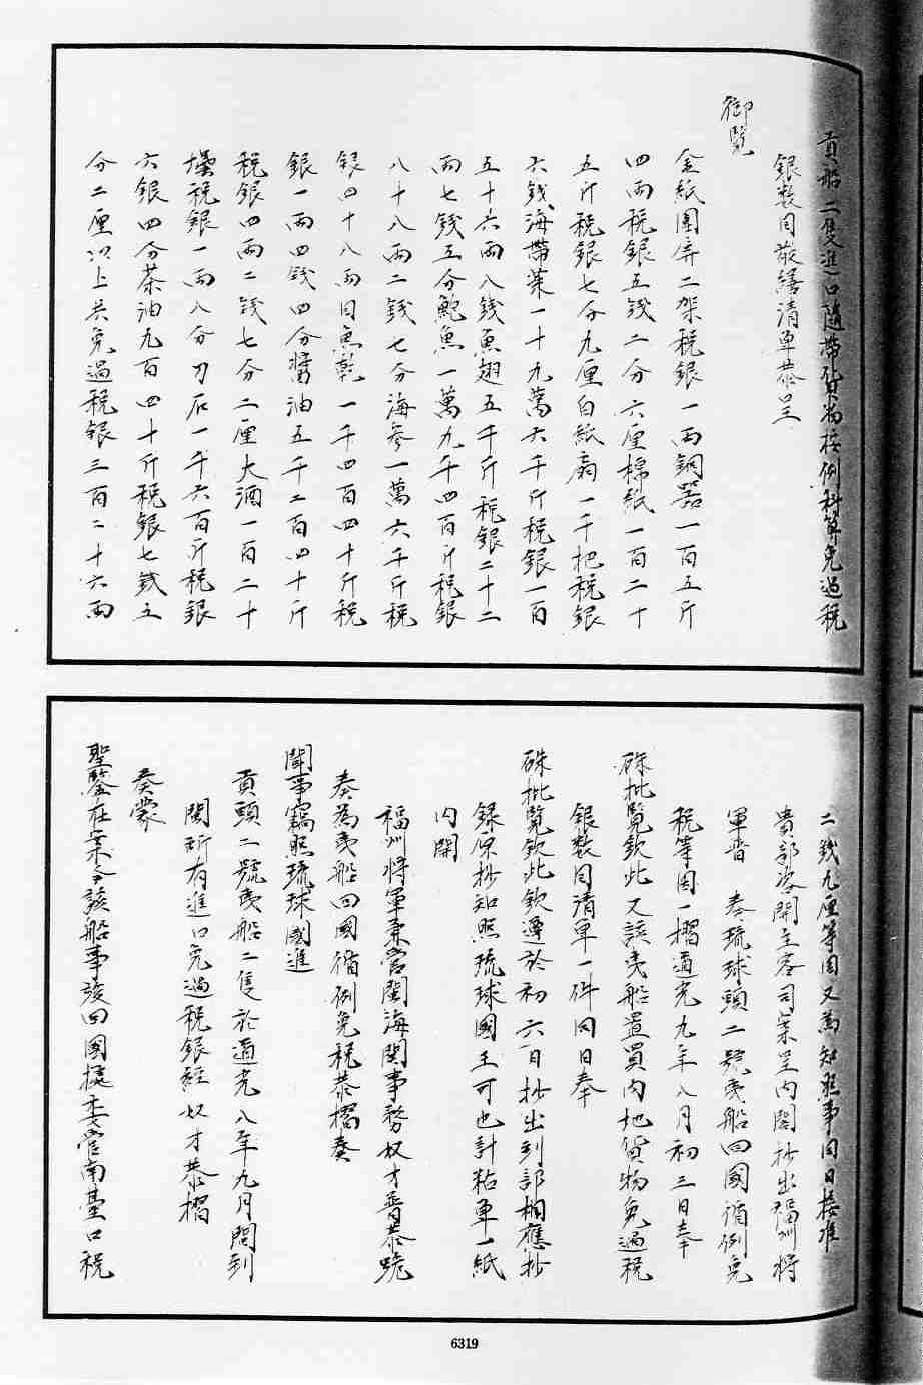 貢船二隻進口隨帶貨物按例科算免過稅
銀數目敬繕清單恭呈
御覽
金紙圍屏二架稅銀一兩銅器一百五斤
四兩稅銀五錢二分六厘棉紙一百二十
五斤稅銀七分九厘白紙扇一千把稅銀
六錢海帶菜一十九萬六千斤稅銀一百
五十六兩八錢魚翅五千斤稅銀二十二
兩七錢五分鮑魚一萬九千四百斤稅銀
八十八兩二錢七分海參一萬六千斤稅
銀四十八兩目魚乾一千四百四十斤稅
銀一兩四錢四分醬油五千二百四十斤
稅銀四兩二錢七分二厘大酒一百二十
壜稅銀一兩八分刀石一千六百斤稅銀
六銀四分茶油九百四十斤稅銀七錢五
分二厘以上共免過稅銀三百二十六兩
二錢九厘等因又為知照事同日接准
貴部咨開主客司案呈內閣抄出福州將
軍晋 奏琉球頭二號夷船回國循例免
稅等因一摺道光九年八月初三日奉
硃批覽欽此又該夷船置買內地貨物免過稅
銀數目清單一件同日奉
硃批覽欽此欽遵於初六日抄出到部相應抄
錄原抄知照琉球國王可也計粘單一紙
內開
福州將軍兼管閩海關事務奴才晋恭跪
奏為夷船回國循例免稅恭摺奏
聞事竊照琉球國進
貢頭二號夷船二隻於道光八年九月間到
閩所有進口免過稅銀經奴才恭摺
奏蒙
聖鑒在案今該船事竣回國據委管南臺口稅
6319